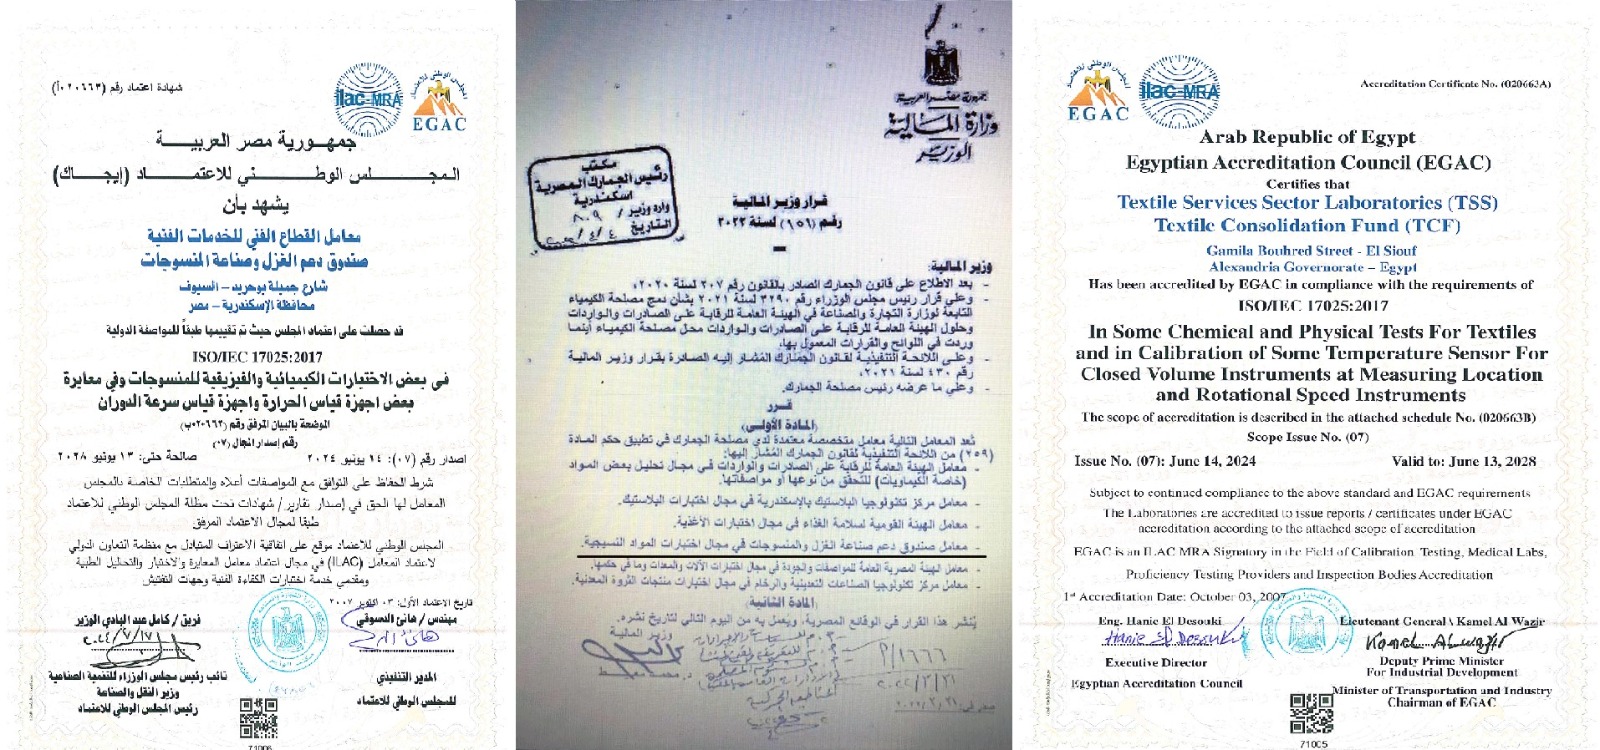 شهادة اعتماد رقم (٠٢٠٦٦٣أ)
ilac-MRA
EGAC
جمهورية مصر العربية
المجلس الوطني للاعتماد (إيجاك)
يشهد بأن
معامل القطاع الفني للخدمات الفنية
صندوق دعم الغزل وصناعة المنسوجات
شارع جميلة بوحريد – السيوف
محافظة الإسكندرية – مصر
قد حصلت على اعتماد المجلس حيث تم تقييمها طبقاً للمواصفة الدولية
ISO/IEC 17025:2017
في بعض الاختبارات الكيميائية والفيزيقية للمنسوجات وفي معايرة
بعض اجهزة قياس الحرارة واجهزة قياس سرعة الدوران
الموضحة بالبيان المرفق رقم (٠٢٠٦٦٣ب)
رقم إصدار المجال (٠٧)
اصدار رقم (٠٧): ١٤ يونيو ٢٠٢٤
صالحة حتى: ١٣ يونيو ٢٠٢٨
شرط الحفاظ على التوافق مع المواصفات أعلاه والمتطلبات الخاصة بالمجلس
المعامل لها الحق في إصدار تقارير/ شهادات تحت مظلة المجلس الوطني للاعتماد
طبقا لمجال الاعتماد المرفق
المجلس الوطني للاعتماد موقع على اتفاقية الاعتراف المتبادل مع منظمة التعاون الدولي
لاعتماد المعامل (ILAC) في مجال اعتماد معامل المعايرة والاختبار والتحاليل الطبية
ومقدمي خدمة اختبارات الكفاءة الفنية وجهات التفتيش
تاريخ الاعتماد الأول: ٠٣ أكتوبر ٢٠٠٧
مهندس / هانئ الدسوقي
فريق / كامل عبد الهادي الوزير
٢٠٢٤/٧/١٧
المدير التنفيذي
للمجلس الوطني للاعتماد
نائب رئيس مجلس الوزراء للتنمية الصناعية
وزير النقل والصناعة
رئيس المجلس الوطني للاعتماد
71006
جمهورية مصر العربية
وزارة المالية
الوزير
مكتب
رئيس الجمارك المصرية
اسكندرية
وارد وزير / ٨٠٩
التاريخ
قرار وزير المالية
رقم (١٥٦) لسنة ٢٠٢٢
وزير المالية:
- بعد الاطلاع على قانون الجمارك الصادر بالقانون رقم ٢٠٧ لسنة ٢٠٢٠،
- وعلى قرار رئيس مجلس الوزراء رقم ٣٢٩٠ لسنة ٢٠٢١ بشأن دمج مصلحة الكيمياء
التابعة لوزارة التجارة والصناعة في الهيئة العامة للرقابة على الصادرات والواردات
وحلول الهيئة العامة للرقابة على الصادرات والواردات محل مصلحة الكيمياء أينما
وردت في اللوائح والقرارات المعمول بها،
- وعلى اللائحة التنفيذية لقانون الجمارك المُشار إليه الصادرة بقرار وزير المالية
رقم ٤٣٠ لسنة ٢٠٢١،
- وعلى ما عرضه رئيس مصلحة الجمارك.
قـرر
(المادة الأولى)
تُعد المعامل التالية معامل متخصصة معتمدة لدي مصلحة الجمارك في تطبيق حكم المادة
(٢٥٩) من اللائحة التنفيذية لقانون الجمارك المُشار إليها:
- معامل الهيئة العامة للرقابة على الصادرات والواردات في مجال تحليل بعض المواد
(خاصة الكيماويات) للتحقق من نوعها أو مواصفاتها.
- معامل مركز تكنولوجيا البلاستيك بالإسكندرية في مجال اختبارات البلاستيك.
- معامل الهيئة القومية لسلامة الغذاء في مجال اختبارات الأغذية.
- معامل صندوق دعم صناعة الغزل والمنسوجات في مجال اختبارات المواد النسيجية.
- معامل الهيئة المصرية العامة للمواصفات والجودة في مجال اختبارات الآلات والمعدات وما في حكمها.
- معامل مركز تكنولوجيا الصناعات التعدينية والرخام في مجال اختبارات منتجات الثروة المعدنية.
(المادة الثانية)
يُنشر هذا القرار في الوقائع المصرية، ويعمل به من اليوم التالي لتاريخ نشره.
وزير المالية
EGAC
ilac-MRA
Accreditation Certificate No. (020663A)
Arab Republic of Egypt
Egyptian Accreditation Council (EGAC)
Certifies that
Textile Services Sector Laboratories (TSS)
Textile Consolidation Fund (TCF)
Gamila Bouhred Street - El Siouf
Alexandria Governorate – Egypt
Has been accredited by EGAC in compliance with the requirements of
ISO/IEC 17025:2017
In Some Chemical and Physical Tests For Textiles
and in Calibration of Some Temperature Sensor For
Closed Volume Instruments at Measuring Location
and Rotational Speed Instruments
The scope of accreditation is described in the attached schedule No. (020663B)
Scope Issue No. (07)
Issue No. (07): June 14, 2024
Valid to: June 13, 2028
Subject to continued compliance to the above standard and EGAC requirements
The Laboratories are accredited to issue reports / certificates under EGAC
accreditation according to the attached scope of accreditation
EGAC is an ILAC MRA Signatory in the Field of Calibration, Testing, Medical Labs,
Proficiency Testing Providers and Inspection Bodies Accreditation
1st Accreditation Date: October 03, 2007
Eng. Hanie El Desouki
Lieutenant General \ Kamel Al Wazir
Hanie El Desouki
Kamel Al wazir
Executive Director
Egyptian Accreditation Council
Deputy Prime Minister
For Industrial Development
Minister of Transportation and Industry
Chairman of EGAC
71005